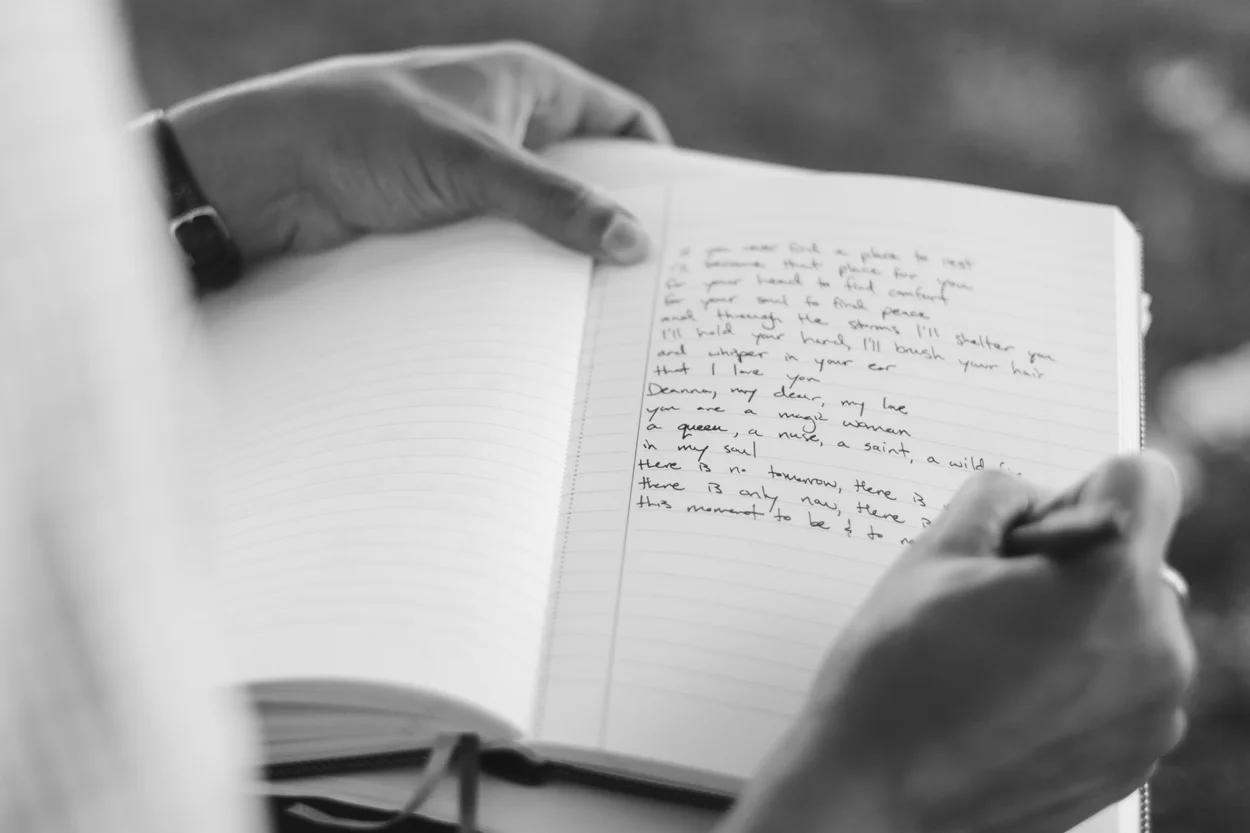 if you ever find a place to rest
I'll become that place for you
for your head to find comfort
for your soul to find peace
and through the storms I'll shelter you
I'll hold your hand, I'll brush your hair
and whisper in your ear
that I love you
Deanna, my dear, my love
you are a magic woman
a queen, a muse, a saint, a wild
in my soul
there is no tomorrow, there is
there is only now, there is
this moment to be & to